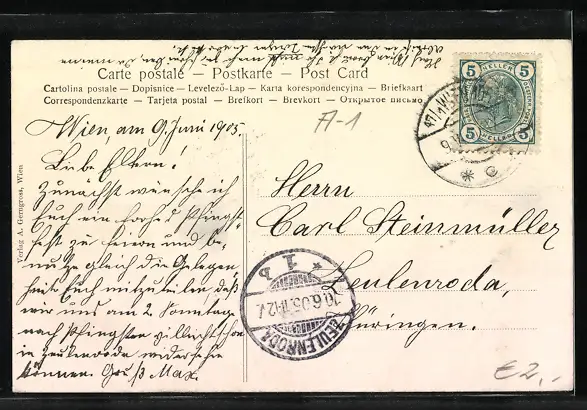 Carte postale – Postkarte – Post Card
Cartolina postale – Dopisnice – Levelező-Lap – Karta korespondencyjna – Briefkaart
Correspondenzkarte – Tarjeta postal – Brefkort – Brevkort – Открытое письмо
Verlag A. Gerngross, Wien
5 HELLER 5
5 HELLER 5
A-1
Wien, am 9. Juni 1905.
Liebe Eltern!
Zunächst wünsche ich
Euch ein frohes Pfingst-
fest zu feiern und be-
nutze gleich die Gelegen-
heit Euch mitzuteilen, daß
wir uns am 2. Sonntage
nach Pfingsten vielleicht schon
in Zeulenroda wiedersehen
können. Gruß Max.
Herrn
Carl Steinmüller
Zeulenroda,
Thüringen.
ZEULENRODA
10.6.05.
1 b
€ 2,-